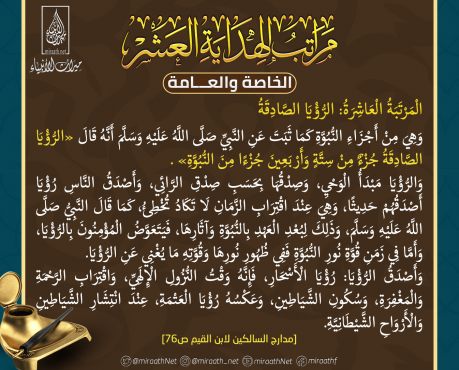 ميراث الأنبياء
miraath.net
ميراث الأنبياء
مراتب الهداية العشر
الخاصة والعـــامة
الْمَرْتَبَةُ الْعَاشِرَةُ: الرُّؤْيَا الصَّادِقَةُ
وَهِيَ مِنْ أَجْزَاءِ النُّبُوَّةِ كَمَا ثَبَتَ عَنِ النَّبِيِّ صَلَّى اللَّهُ عَلَيْهِ وَسَلَّمَ أَنَّهُ قَالَ «الرُّؤْيَا
الصَّادِقَةُ جُزْءٌ مِنْ سِتَّةٍ وَأَرْبَعِينَ جُزْءًا مِنَ النُّبُوَّةِ» .
وَالرُّؤْيَا مَبْدَأُ الْوَحْيِ، وَصِدْقُهَا بِحَسَبِ صِدْقِ الرَّائِي، وَأَصْدَقُ النَّاسِ رُؤْيَا
أَصْدَقُهُمْ حَدِيثًا، وَهِيَ عِنْدَ اقْتِرَابِ الزَّمَانِ لَا تَكَادُ تُخْطِئُ، كَمَا قَالَ النَّبِيُّ صَلَّى
اللَّهُ عَلَيْهِ وَسَلَّمَ، وَذَلِكَ لِبُعْدِ الْعَهْدِ بِالنُّبُوَّةِ وَآثَارِهَا، فَيَتَعَوَّضُ الْمُؤْمِنُونَ بِالرُّؤْيَا،
وَأَمَّا فِي زَمَنِ قُوَّةِ نُورِ النُّبُوَّةِ فَفِي ظُهُورِ نُورِهَا وَقُوَّتِهِ مَا يُغْنِي عَنِ الرُّؤْيَا.
وَأَصْدَقُ الرُّؤْيَا: رُؤْيَا الْأَسْحَارِ، فَإِنَّهُ وَقْتُ النُّزُولِ الْإِلَهِيِّ، وَاقْتِرَابِ الرَّحْمَةِ
وَالْمَغْفِرَةِ، وَسُكُونِ الشَّيَاطِينِ، وَعَكْسُهُ رُؤْيَا الْعَتَمَةِ، عِنْدَ انْتِشَارِ الشَّيَاطِينِ
وَالْأَرْوَاحِ الشَّيْطَانِيَّةِ.
[مدارج السالكين لابن القيم ص76]
@miraathNet @miraath_net miraathNet miraathf